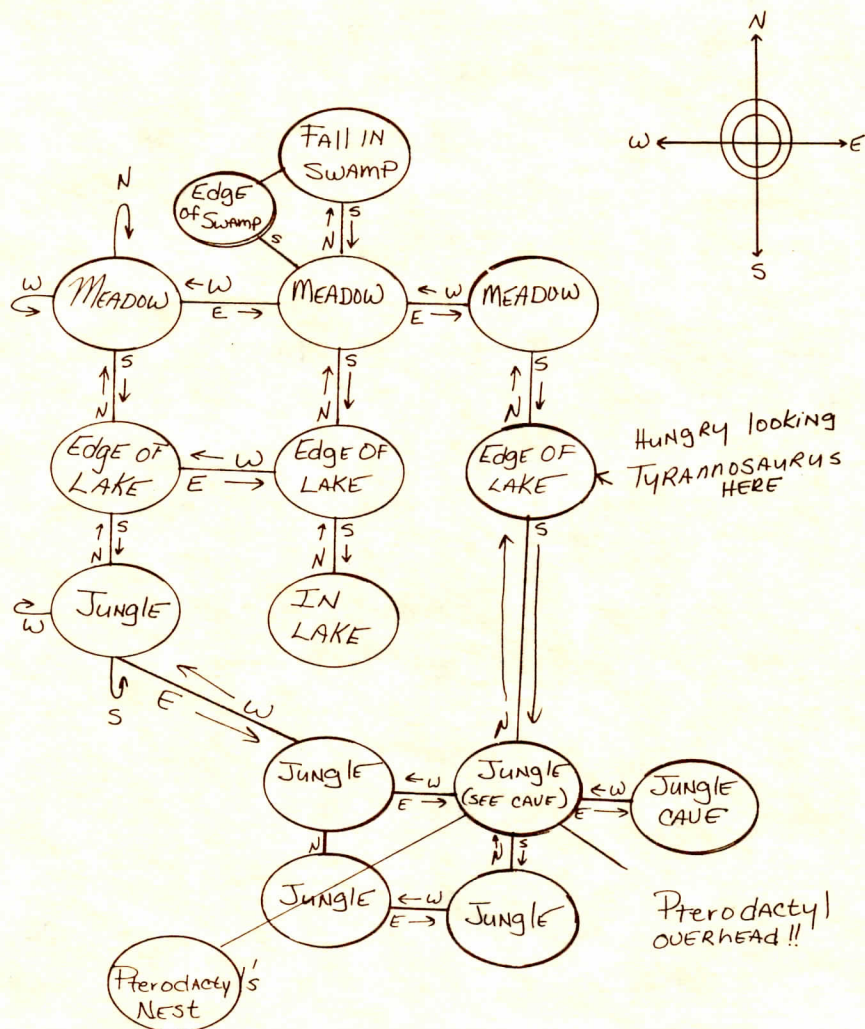 N
W
E
S
Fall IN
SWAMP
Edge
of Swamp
S
S
N
N
W
MEADOW
W
E
MEADOW
W
E
MEADOW
S
N
S
N
S
N
Edge of
LAKE
W
E
Edge of
LAKE
Edge of
LAKE
Hungry looking
TYRANNOSAURUS
HERE
S
N
S
N
S
Jungle
W
S
IN
LAKE
W
E
N
Jungle
W
E
Jungle
(SEE CAVE)
W
E
Jungle
CAVE
N
N
S
Jungle
W
E
Jungle
Pterodactyl
OVERHEAD!!
Pterodactyl's
NEST